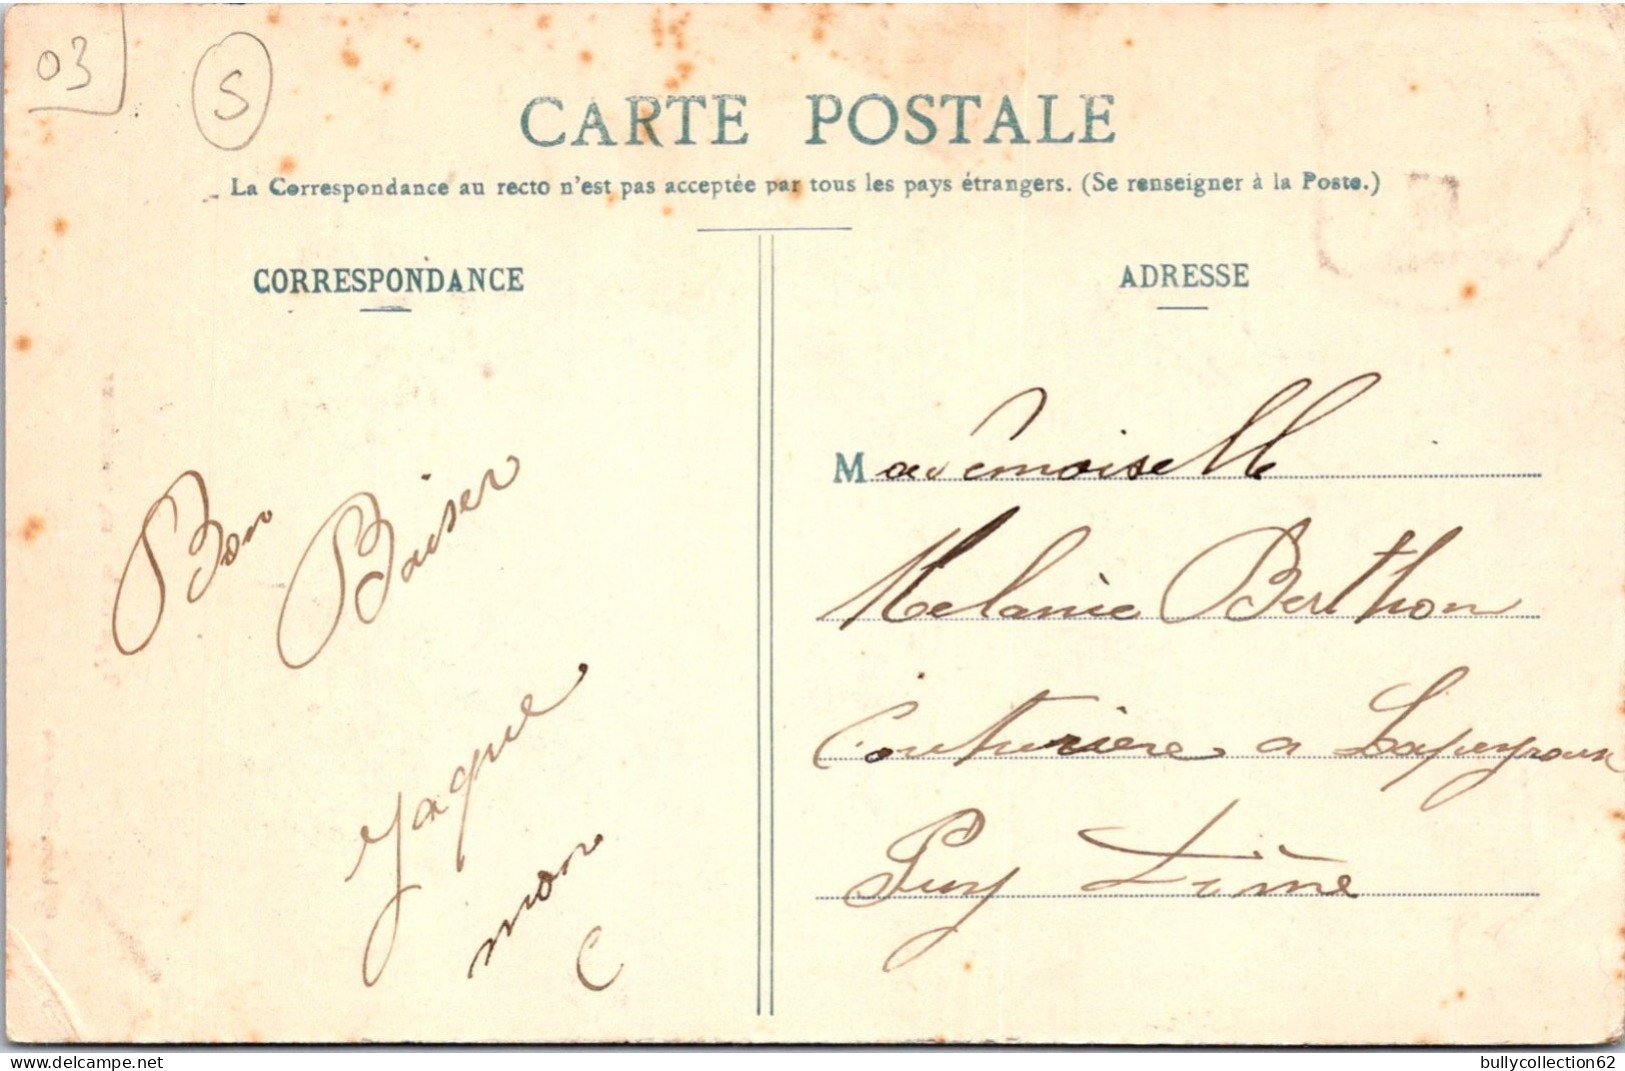 03
S
CARTE POSTALE
La Correspondance au recto n'est pas acceptée par tous les pays étrangers. (Se renseigner à la Poste.)
CORRESPONDANCE
Bon Baiser
Jaque
mon
C
ADRESSE
Mademoiselle
Melanie Berthon
Couturiere a Lapeyroux
Puy
bullycollection62